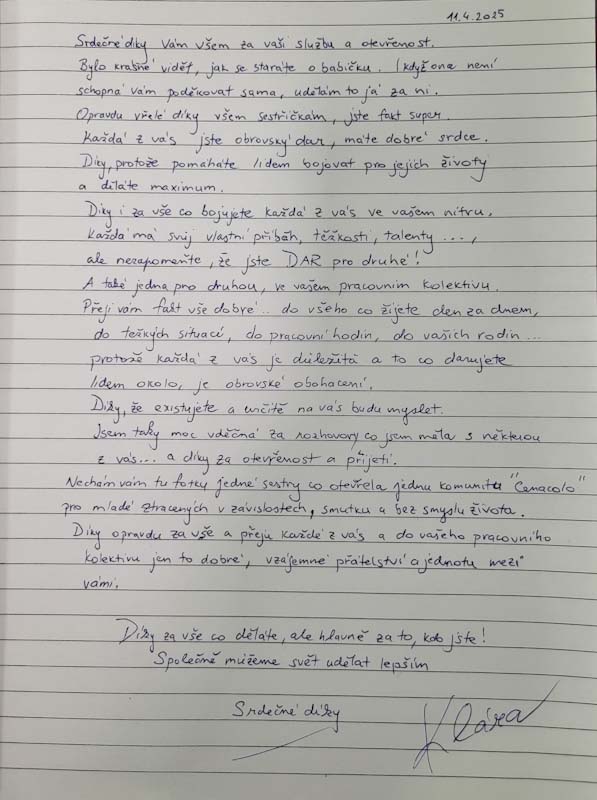 11.4.2025
Srdečné díky Vám všem za vaši službu a otevřenost.
Bylo krásné vidět, jak se staráte o babičku. I když ona není
schopná vám poděkovat sama, udělám to já za ni.
Opravdu vřelé díky všem sestřičkám, jste fakt super.
Každá z vás jste obrovský dar, máte dobré srdce.
Díky, protože pomáháte lidem bojovat pro jejich životy
a děláte maximum.
Díky i za vše co bojujete každá z vás ve vašem nitru.
Každá má svůj vlastní příběh, těžkosti, talenty ...,
ale nezapomeňte, že jste DAR pro druhé!
A také jedna pro druhou, ve vašem pracovním kolektivu.
Přeji vám fakt vše dobré.. do všeho co žijete den za dnem,
do težkých situací, do pracovní hodin, do vašich rodin...
protože každá z vás je důležitá a to co darujete
lidem okolo, je obrovské obohacení.
Díky, že existujete a určitě na vás budu myslet.
Jsem taky moc vděčná za rozhovory co jsem měla s některou
z vás... a díky za otevřenost a přijetí.
Nechám vám tu fotky jedné sestry co otevřela jednu komunitu "Cenacolo"
pro mladé ztracených v závislostech, smutku a bez smyslu života.
Díky opravdu za vše a přeju každé z vás a do vašeho pracovního
kolektivu jen to dobré, vzájemné přátelství a jednotu mezi
vámi.
Díky za vše co děláte, ale hlavně za to, kdo jste!
Společně můžeme svět udělat lepším
Srdečné díky
Klára